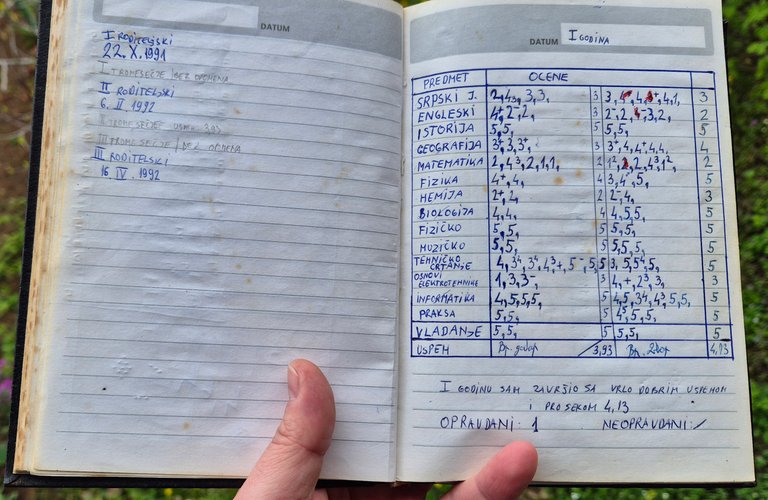 DATUM
I RODITELJSKI
22. X. 1991
I TROMESEČJE / BEZ OPOMENA
II RODITELJSKI
6. II. 1992
II TROMESEČJE
III TROMESEČJE / BEZ OPOMENA
III RODITELJSKI
16 IV. 1992
DATUM I GODINA
PREDMET OCENE
SRPSKI J. 2, 4, 3, 3, 3 3, 4, 4, 4, 1, 3
ENGLESKI 2
ISTORIJA 5, 5, 5 5, 5, 5
GEOGRAFIJA 3 3⁺, 4, 4⁺, 4, 4
MATEMATIKA 2, 4, 2, 1, 1, 2
FIZIKA 4⁺, 4, 4 3, 4, 5, 5
HEMIJA 2⁺, 2, 2 2⁻, 4, 3
BIOLOGIJA 4, 4, 4 4, 5, 5, 5
FIZIČKO 5, 5, 5 5, 5, 5
MUZIČKO 5, 5, 5 5, 5, 5, 5
TEHNIČKO CRTANJE 5
OSNOVI ELEKTROTEHNIKE 1, 3, 3⁻, 3 3
INFORMATIKA 4, 5, 5, 5, 5 5
PRAKSA 5, 5, 5 5
VLADANJE 5, 5, 5 5, 5, 5
USPEH 3,93 4,13
I GODINU SAM ZAVRŠIO SA VRLO DOBRIM USPEHOM
I PROSEKOM 4,13
OPRAVDANI: 1 NEOPRAVDANI: /